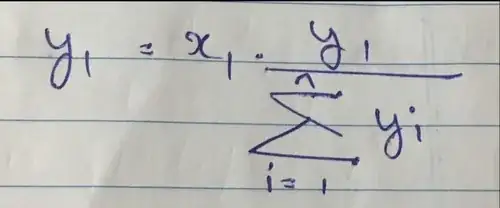 y₁ = x₁ · y₁ / ∑ᵢ₌₁ⁿ yᵢ